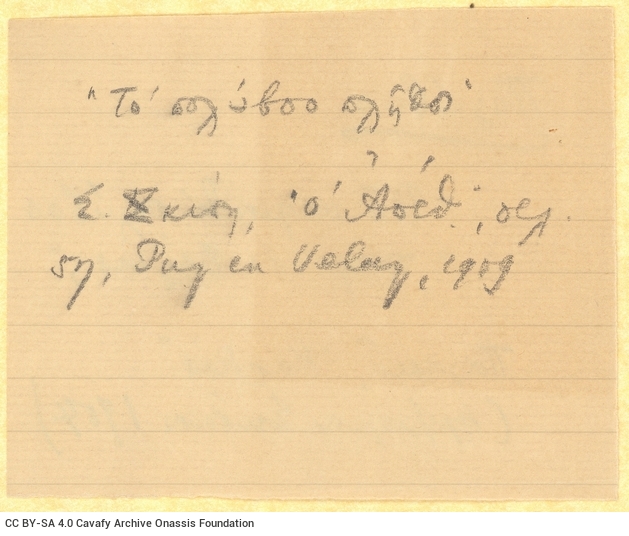 "Το πολύβοο πλῆθος"
Σ. Σκίπη, "ὁ Ἀπέθ", σελ.
57, Puy en Velay, 1909
CC BY-SA 4.0 Cavafy Archive Onassis Foundation